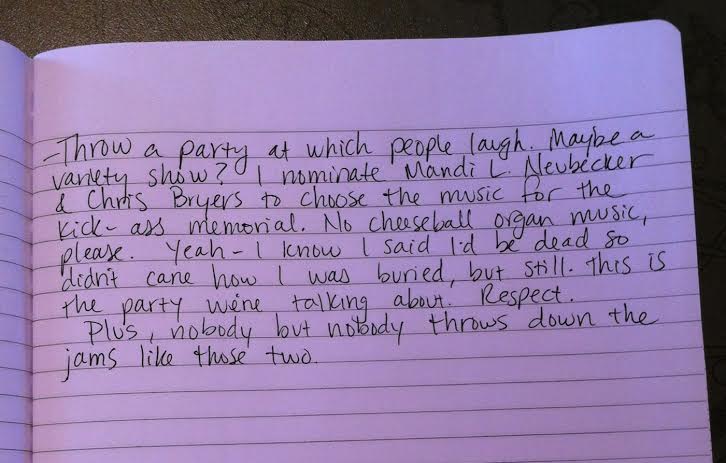 - Throw a party at which people laugh. Maybe a
variety show? I nominate Mandi L. Neubecker
& Chris Bryers to choose the music for the
kick-ass memorial. No cheeseball organ music,
please. Yeah - I know I said I'd be dead so
didn't care how I was buried, but still. This is
the party we're talking about. Respect.
Plus, nobody but nobody throws down the
jams like those two.